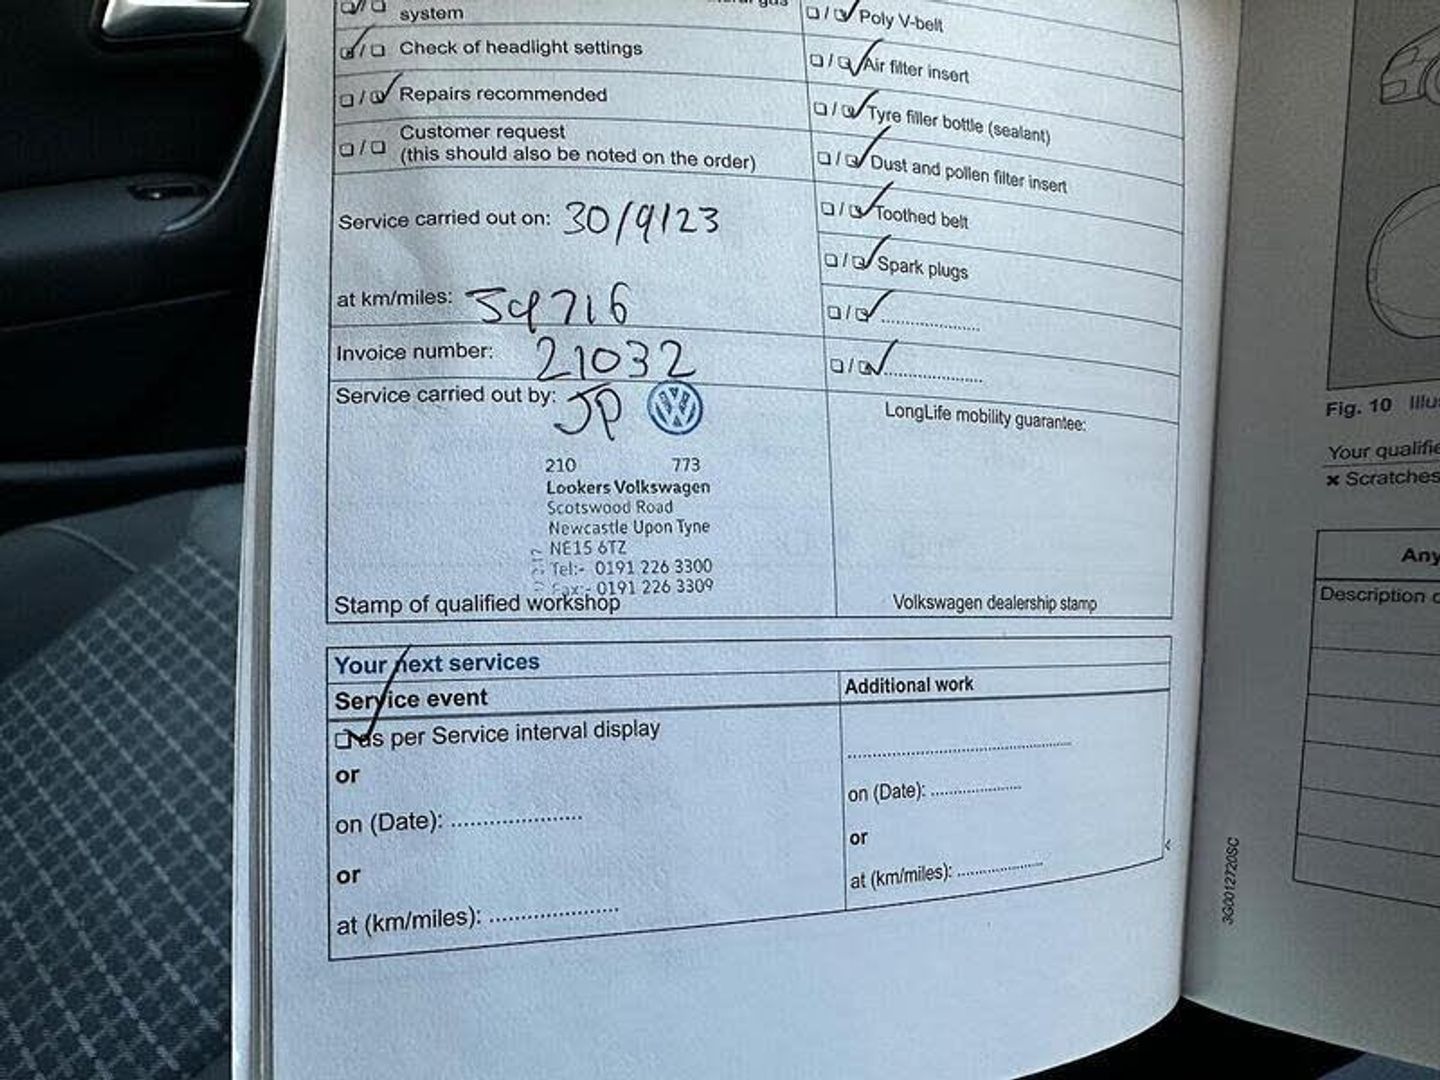 system
Check of headlight settings
Repairs recommended
Customer request
(this should also be noted on the order)
Service carried out on: 30/9/23
at km/miles: 59716
Invoice number: 21032
Service carried out by: JP
210 773
Lookers Volkswagen
Scotswood Road
Newcastle Upon Tyne
NE15 6TZ
Tel:- 0191 226 3300
Fax:- 0191 226 3309
Stamp of qualified workshop
Poly V-belt
Air filter insert
Tyre filler bottle (sealant)
Dust and pollen filter insert
Toothed belt
Spark plugs
LongLife mobility guarantee:
Volkswagen dealership stamp
Your next services
Service event
as per Service interval display
or
on (Date): ......................
or
at (km/miles): .....................
Additional work
on (Date): ....................
or
at (km/miles): ...................
3G0012720SC
Fig. 10
Your
× Scratches
Any
Description